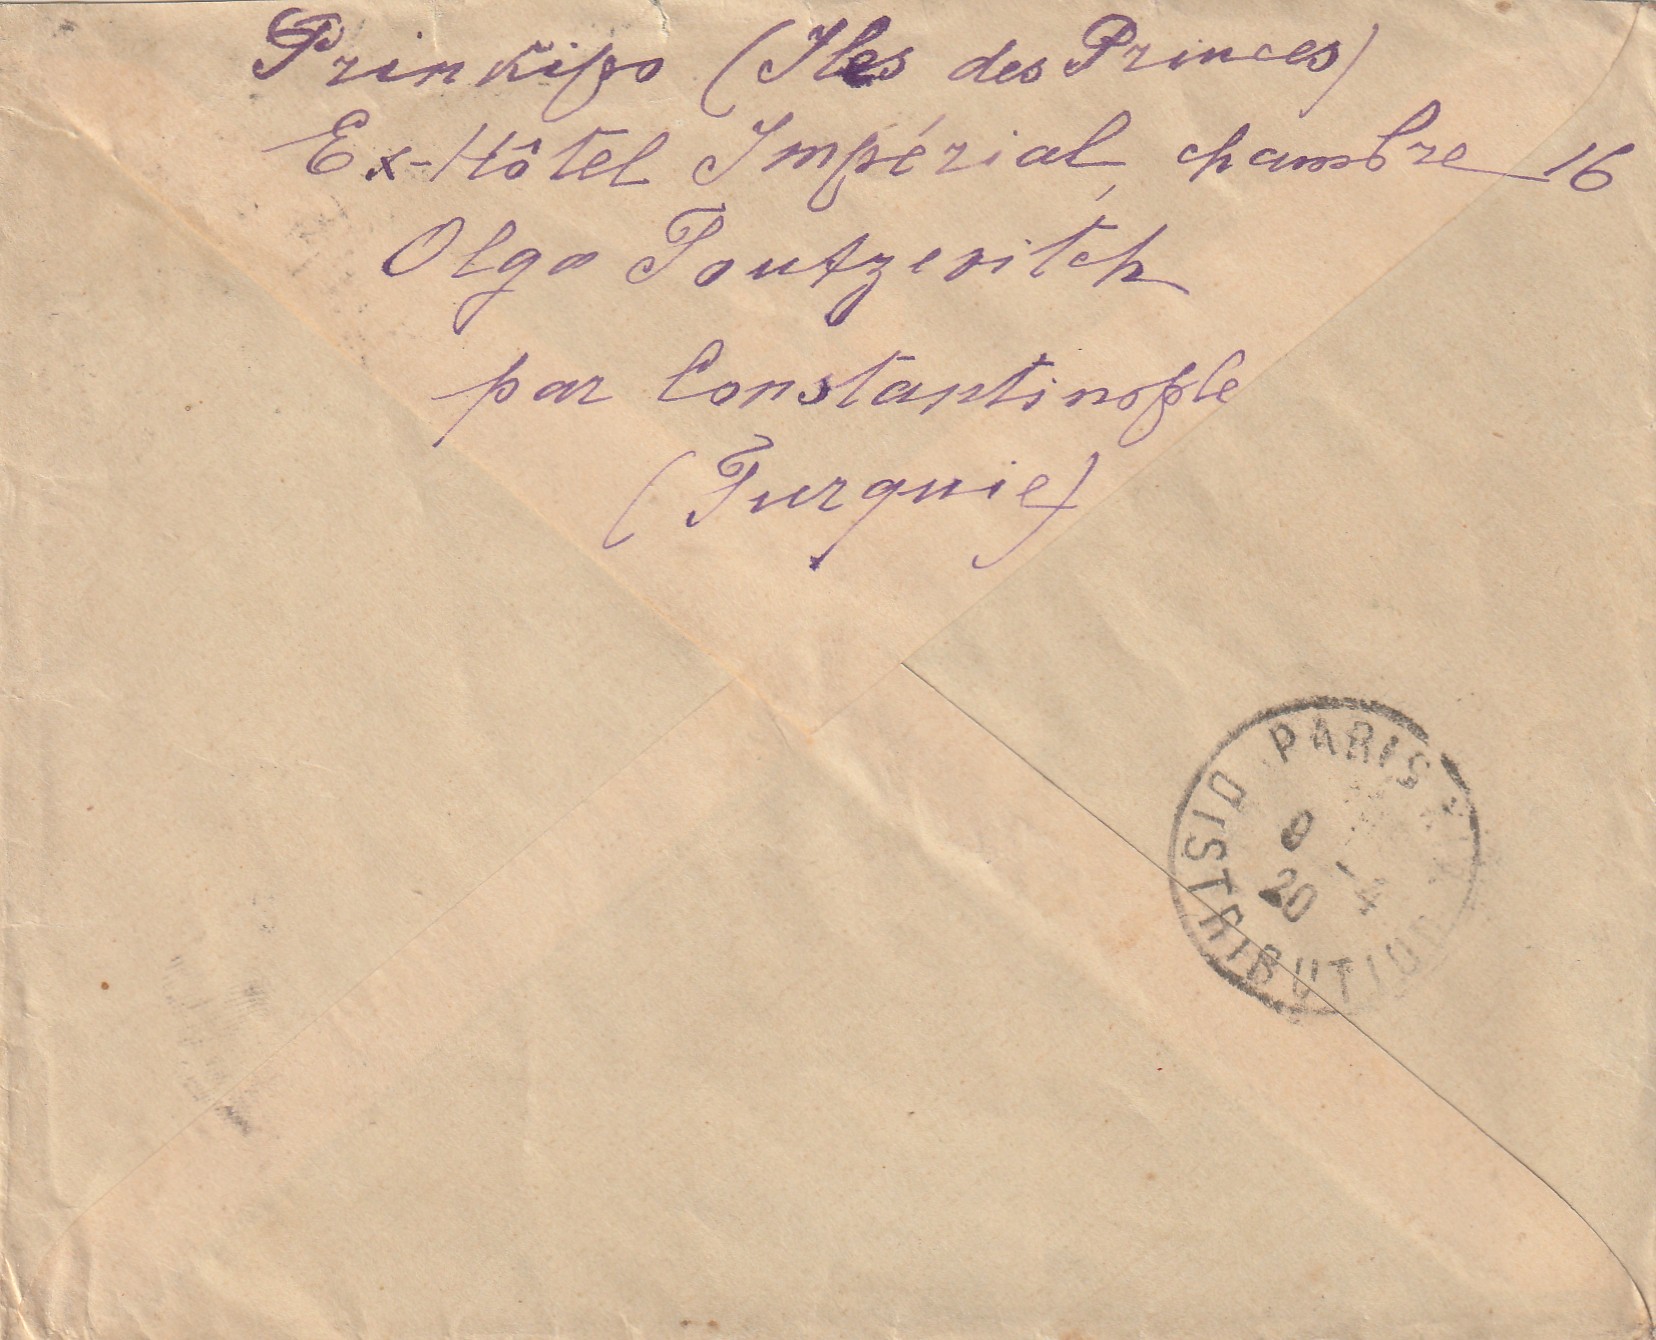 Prinkipo (Iles des Princes)
Ex-Hôtel Impérial, chambre 16
Olga Toutzevitch
par Constantinople
(Turquie)
PARIS
DISTRIBUTION
20